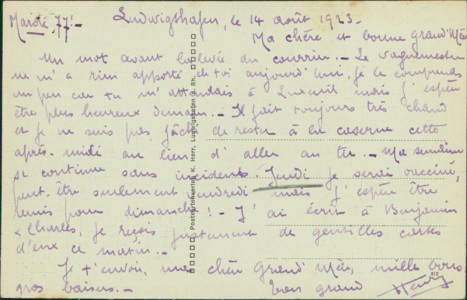 Mardi 77!-
Ludwigshafen, le 14 août 1923.-
Ma chère et bonne grand'Mère
Un mot avant la levée du courrier.- Le vaguemestre
ne m'a rien apporté de toi aujourd'hui, je le comprends
un peu car tu m'attendais à mais j'espère
être plus heureux demain.- Il fait toujours très chaud
et je ne suis pas fâché de rester à la caserne cette
après-midi au lieu d'aller au tir.- Ma semaine
se continue sans incidents. Jeudi je serai vacciné,
peut-être seulement vendredi mais j'espère être
remis pour dimanche!- J'ai écrit à Benjamin
& Charles, je reçois justement de gentilles cartes
d'eux ce matin.-
Je t'envoie, ma chère Grand'Mère, mille bons
gros baisers.- ton grand Henry
Postkartenverlag K. Horn, Ludwigshafen a. Rh.